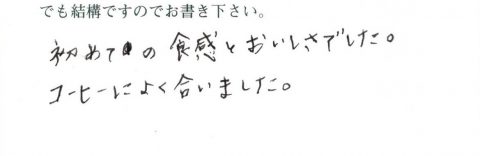 でも結構ですのでお書き下さい。
初めての食感とおいしさでした。
コーヒーによく合いました。